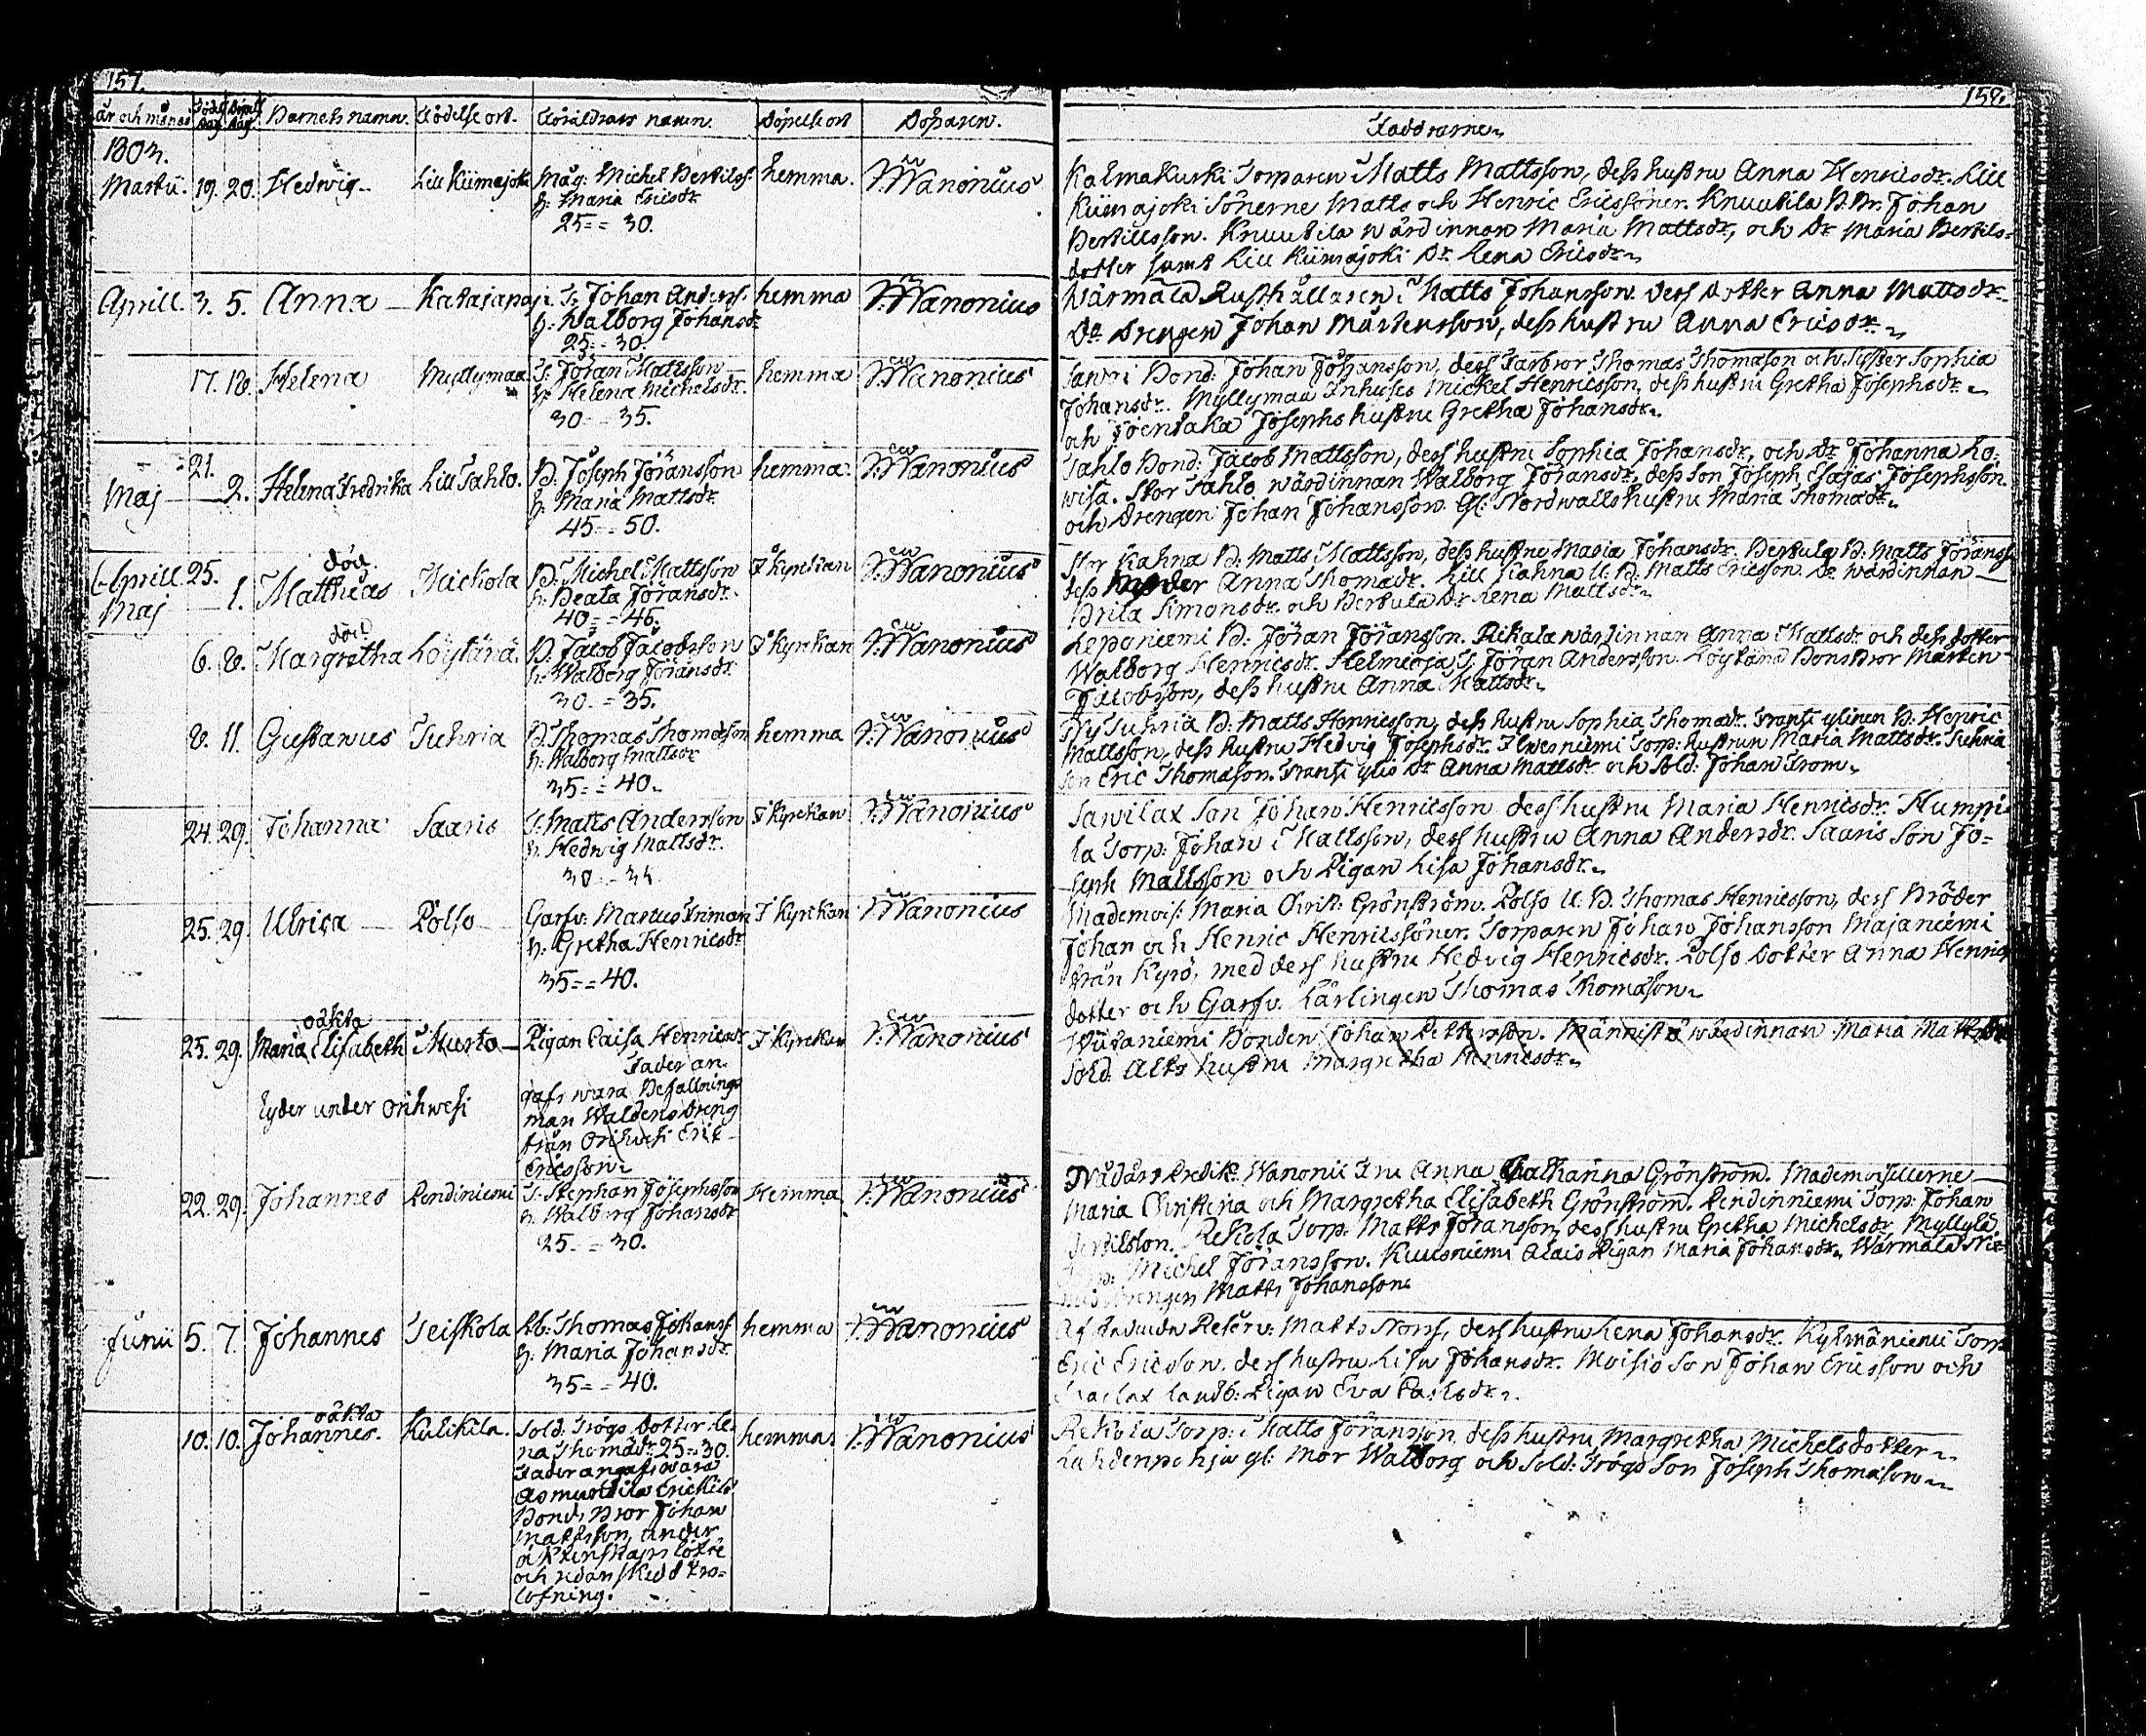 157.
År och månad Födelse dag Döpelse dag Barnets namn. Födelse ort. Föräldrars namn. Döpelse ort Döparen.
1803.
Martii. 19. 20. Hedwig Lill Kiimajoki Måg: Michel Bertilss: hemma. Wanonius
h: Maria Ericsdr.
25 = = 30.
Aprill. 3. 5. Anna Katajapaja T. Johan Anderss. hemma Wanonius
h: Walborg Johansdr
25 = 30.
17. 18. Helena Myllymaa T. Johan Mattsson hemma Wanonius
h: Helena Michelsdr.
30 = 35.
21.
Maj 2. Helena Fredrika Lill Sahlo. B. Joseph Jöransson hemma. Wanonius
h: Maria Mattsdr.
45 = 50.
död.
Aprill 25. Matthias Mickola B: Michel Mattsson I kyrkan Wanonius
Maj 1. h: Beata Jöransdr.
40 = = 46.
död
6. 8. Margretha Löytänä. B. Jacob Jacobsson I kyrkan Wanonius
h: Walborg Jöransdr.
30 = 35.
8. 11. Gustavus Tuhria B. Thomas Thomasson hemma Wanonius
h: Walborg Mattsdr
35 = = 40.
24. 29. Johanna Saaris T. Matts Andersson I kyrckan Wanonius
h. Hedwig Mattsdr.
30 = 34
25. 29. Ulrica Pölso Garfv: Marcus Friman I kyrckan Wanonius
h: Gretha Henricsdr
35 = = 40.
oäkta
25. 29. Maria Elisabeth Murto Pigan Caisa Henricsdr I kyrckan Wanonius
Fader an-
gafs wara Befallnings
lyder under Orihwesi
man Waldens dreng
från Orihwesi Eric
Ericsson
22. 29. Johannes Rendiniemi T. Stephan Josephsson Hemma Wanonius
h: Walborg Johansdr
25 = = 30.
Junii 5. 7. Johannes Teiskola Thomas Johanss hemma Wanonius
h: Maria Johansdr.
35 = = 40.
oäkta
10. 10. Johannes. Kulikila. Sold: Frögs dotter He- hemma. Wanonius
na Thomädr. 25 = 30.
Fader angafs wara
Asmuntila Erickilä
Bond: Bror Johan
Mattsson, under
äktenskaps löfte
och redan skedd tro-
lofning.
158.
Faddrarne
Kalmakurki Torparen Matts Mattsson, dess hustru Anna Henricsdr. Lill
Kiimajoki Sönerne Matts och Henric Ericssöner. Knuutila B. Br. Johan
Bertillsson. Knuutila wärdinnan Maria Mattsdr, och Dr Maria Bertils-
dotter samt Lill Kiimajoki Dr. Lena Ericsdr
Wärmälä Rusthållaren Matts Johansson. dess dotter Anna Mattsdr.
Dr Drengen Johan Mårtensson, dess hustru Anna Ericsdr.
Bond: Johan Johansson, dess Farbror Thomas Thomasson och Syster Sophia
Johansdr. Myllymaa Inhuses Mickel Henricsson, dess hustru Gretha Josephsdr.
och Joentaka Josephs hustru Gretha Johansdr.
Sahlo Bond: Jacob Mattsson, dess hustru Sophia Johansdr, och Dr Johanna Lo-
wisa. Stor Sahlo wärdinnan Walborg Jöransdr, dess son Joseph Esajas Josephsson.
och Drengen Johan Johansson. Gl: Nordwalls hustru Maria Thomädr.
Stor Kahna B. Matts Mattsson, dess hustru Maria Johansdr. Perkula B. Matts Jöranss.
dess Anna Thomädr. Lill Kahna U: B: Matts Ericsson. Dr wärdinnan
Brita Simonsdr. och Perkula Dr Lena Mattsdr.
Leponiemi B: Jöran Jöransson. Rikala wärdinnan Anna Mattsdr och dess dotter
Walborg Henricsdr. Helmioja T. Jöran Andersson. Löytänä Bonsbror Mårten
Jacobsson, dess hustru Anna Mattsdr.
Ny Tuhria B: Matts Henricsson, dess hustru Sophia Thomädr. B: Henric
Mattsson, dess hustru Hedvig Josephsdr. Ilwesniemi Torp: hustrun Maria Mattsdr. Tuhria
son Eric Thomasson. Dr Anna Mattsdr och Sold: Johan From.
Sawilax Son Johan Henricsson dess hustru Maria Henricsdr. Humpi-
la Torp: Johan Mattsson, dess hustru Anna Andersdr. Saaris Son Jo-
seph Mattsson och Pigan Lisa Johansdr.
Mademois: Maria Christ: Grönström. Pölso U. B. Thomas Henricsson, dess Bröder
Johan och Henric Henricssöner. Torparen Johan Johansson Majaniemi
från Kyrö, med dess hustru Hedvig Henricsdr. Pölso dotter Anna Henrics
dotter och Garfv. Lärlingen Thomas Thomasson
Wiitaniemi Bonden Johan Pettersson. Männistö wärdinnan Maria Mattsdr
Sold. Alts hustru Margretha Henricsdr.
Nådårs Predik: Wanonii Fru Anna Catharina Grönström. Mademoisellerne
Maria Christina och Margretha Elisabeth Grönström. Rendinniemi Torp: Johan
Bertilsson. Rekola Torp: Matts Jöransson, dess hustru Gretha Michelsdr. Myllylä
Torp: Michel Jöransson. Kuusniemi Pigan Maria Johansdr. Wärmälä
Drengen Matts Johansson.
Reserv: Matts Norss, dess hustru Lena Johansdr. Kylmäniemi Torp:
Eric Ericsson. dess hustru Lisa Johansdr. Moisio Son Johan Ericsson och
landb: Pigan Eva
Rekola Torp: Matts Jöransson, dess hustru Margretha Michelsdotter
Lahdenpohja gl: Mor Walborg och Sold: Frögs Son Joseph Thomasson